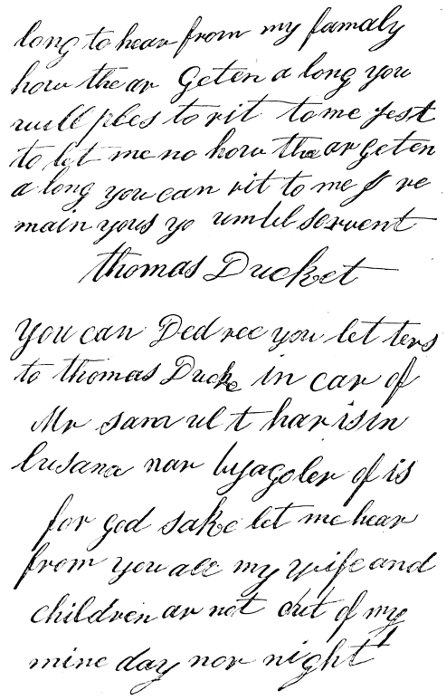 long to hear from my famaly
how the ar Geten a long you
will ples to rit to me jest
to let me no how the ar geten
a long you can rit to me I re
main yours yo umbl servent
thomas Ducket
you can Ded rec you let ters
to thomas Ducke in car of
Mr samul t harisin
lusana nar byagoler of is
for god sake let me hear
from you all my wife and
children ar not out of my
mine day nor night